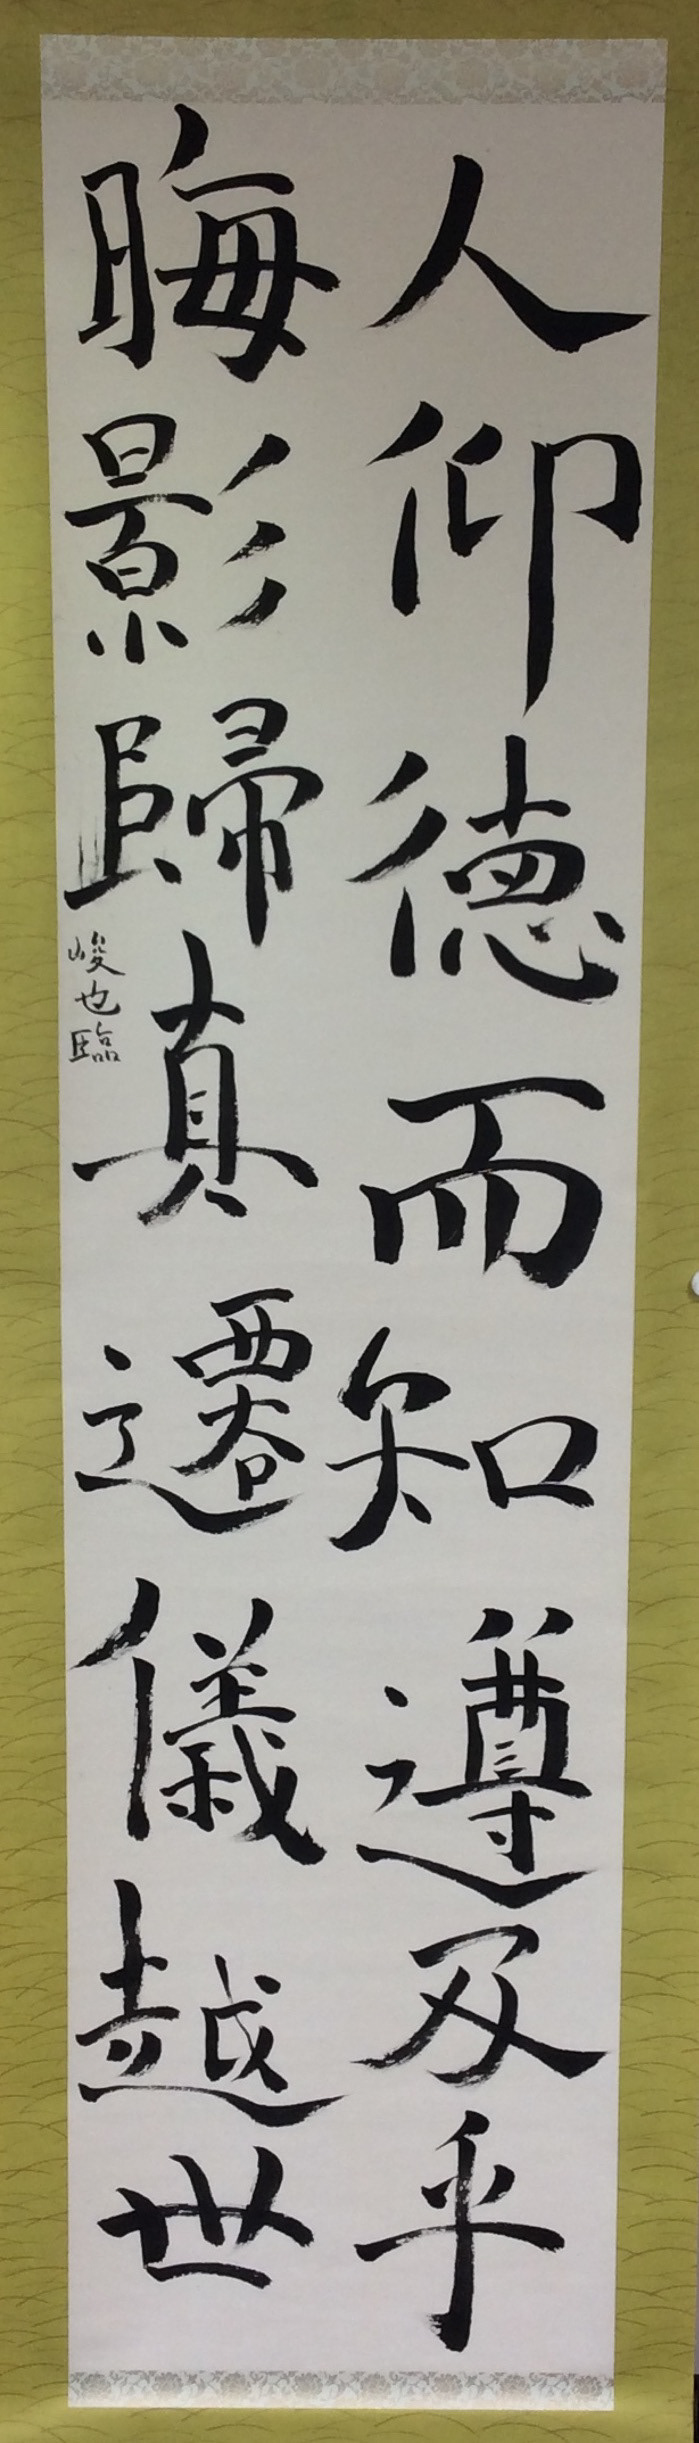 人仰德而知遵及乎
晦影歸真遷儀越世
峻也臨